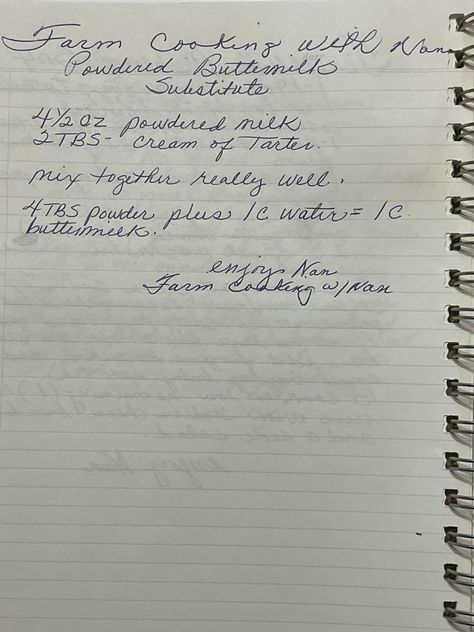 Farm Cooking with Nan
Powdered Buttermilk
Substitute
4 1/2 oz powdered milk
2 TBS - cream of Tarter.
mix together really well.
4 TBS powder plus 1 C water = 1 C.
buttermilk.
enjoy Nan
Farm Cooking w/Nan
enjoy Nan